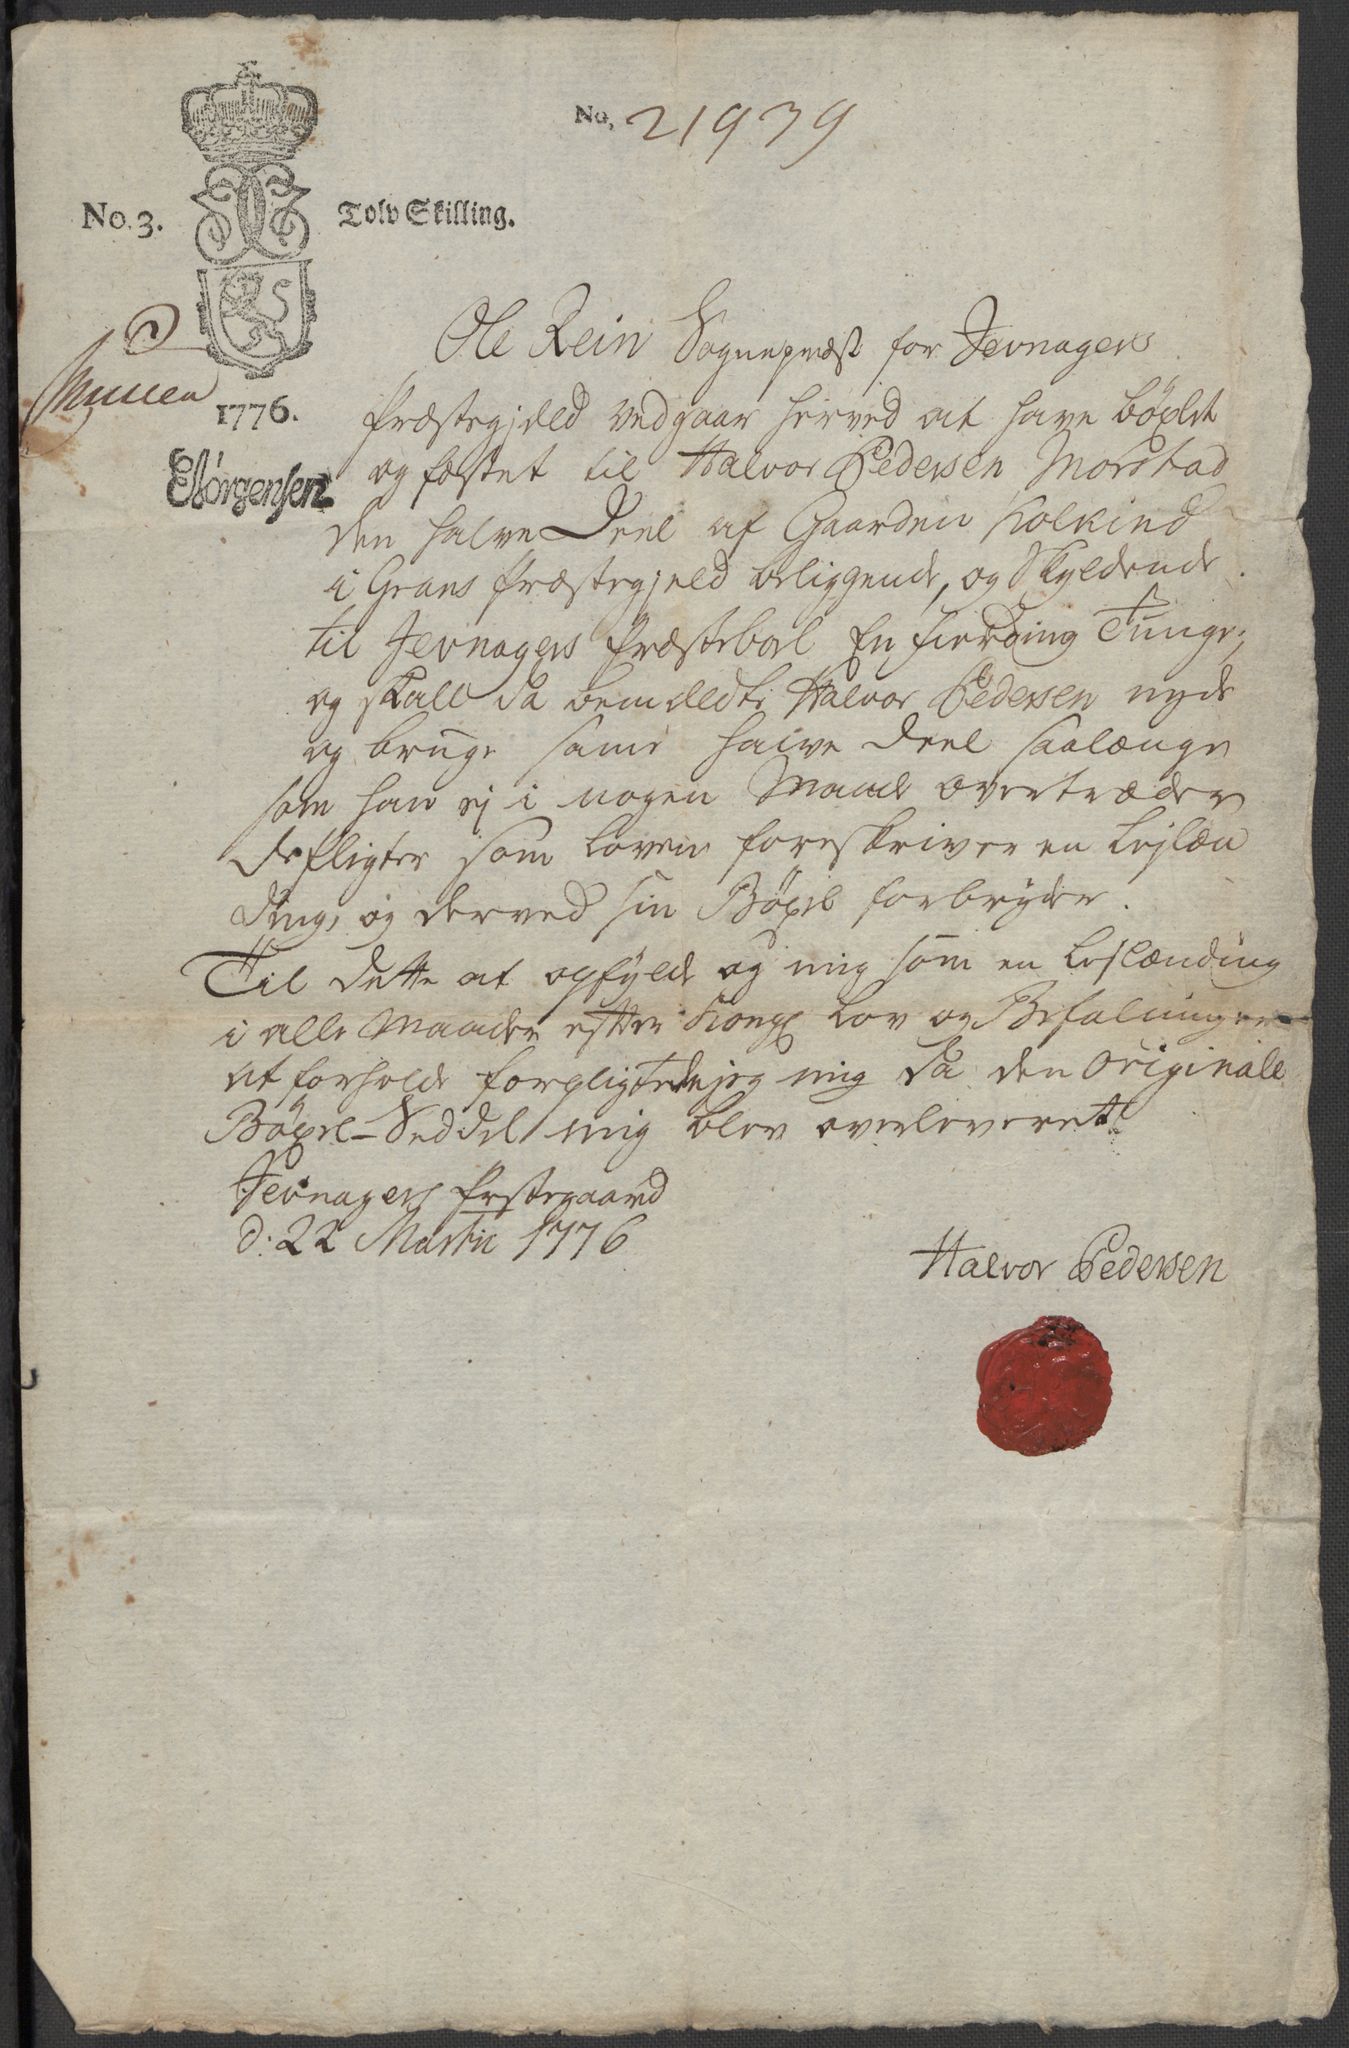 No. 21939
No. 3.
Tolv Skilling.
1776.
EJörgensen
Ole Rein Sognepræst for Jevnagers
Præstegjeld vedgaar herved at have böxlet
og fæstet til Halvor Pedersen Morstad
den halve Deel af Gaarden Kolkind
i Grans Præstegjeld beliggende, og Skyldende
til Jevnagers Præstebol En Fierding Tunge;
og skall da bemeldte Halvor Pedersen nyde
og bruge samme halve Deel saalænge
som han ej i nogen Maade overtræder
de Pligter som Loven foreskriver en Lejlæn
ding, og derved sin Böxel forbryder.
Til dette at opfylde og mig som en Lejlænding
i alle Maader efter Kongl Lov og Befalninger
at forholde forpligtede jeg mig da den Originale
Böxel-Seddel mig blev overleveret
Jevnagers Prstegaard
d: 22 Martii 1776
Halvor Pedersen